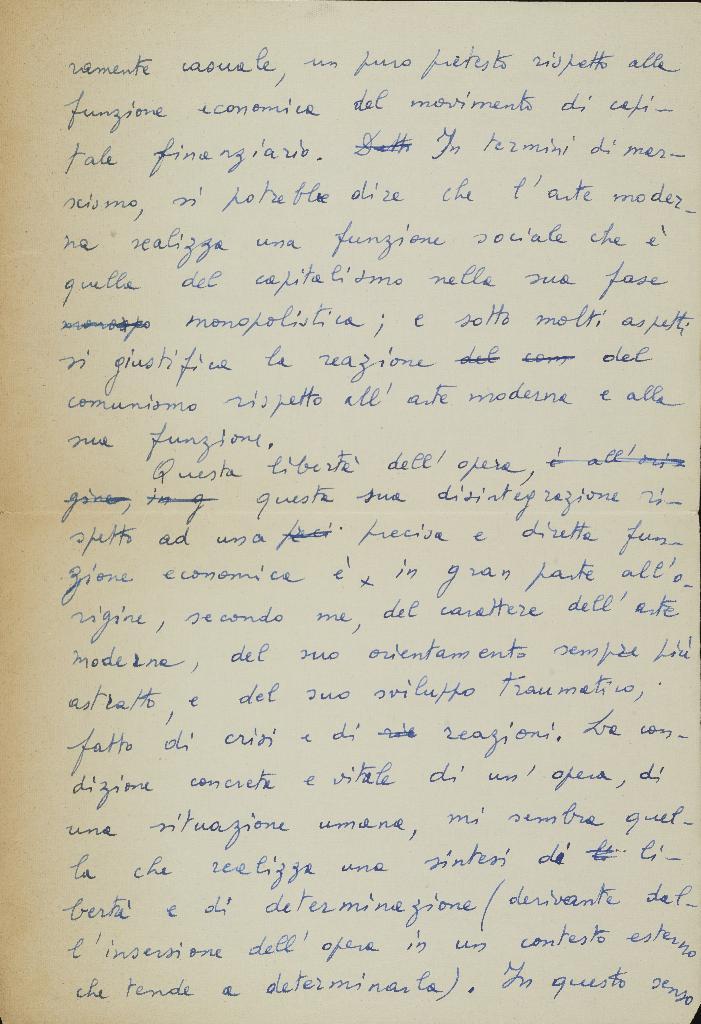 ramente casuale, un puro pretesto rispetto alla
funzione economica del movimento di capi-
tale finanziario. In termini di mar-
xismo, si potrebbe dire che l'arte moder-
na realizza una funzione sociale che è
quella del capitalismo nella sua fase
monopolistica; e sotto molti aspetti
si giustifica la reazione del com del
comunismo rispetto all'arte moderna e alla
sua funzione.
Questa libertà dell'opera, è all'ori
gine, in g questa sua disintegrazione ri-
spetto ad una precisa e diretta fun-
zione economica è, in gran parte all'o-
rigine, secondo me, del carattere dell'arte
moderna, del suo orientamento sempre più
astratto, e del suo sviluppo traumatico,
fatto di crisi e di reazioni. La con-
dizione concreta e vitale di un'opera, di
una situazione umana, mi sembra quel-
la che realizza una sintesi di li-
bertà e di determinazione (derivante dal-
l'inserzione dell'opera in un contesto esterno
che tende a determinarla). In questo senso